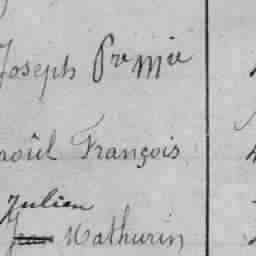 Joseph Pre Mie
aoül François
Julien
Jean Mathurin